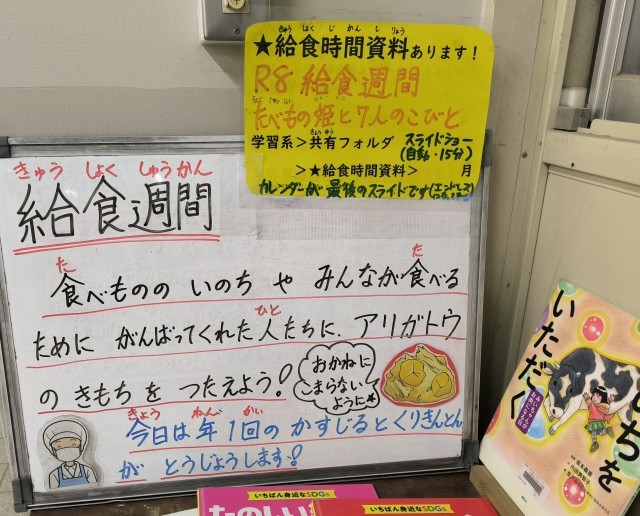 きゅう しょく じ かん し りょう
★給食時間資料あります!
R8 給食週間
たべもの姫と7人のこびと
きょう ゆう
学習系>共有フォルダ スライドショー
(自動・15分)
>★給食時間資料> 月
カレンダーが最後のスライドです
きゅう しょく しゅうかん
給食週間
た た
食べものの いのち や みんなが食べる
ひと
ために がんばってくれた人たちに、アリガトウ
の きもち を つたえよう!
おかねに
こまらない
ように
きょう ねん かい
今日は年1回の かすじると くりきんとん
が とうじょうします!
いちばん身近なSDGs
たのしい
いちばん身近なSDGs
ちを
いただく